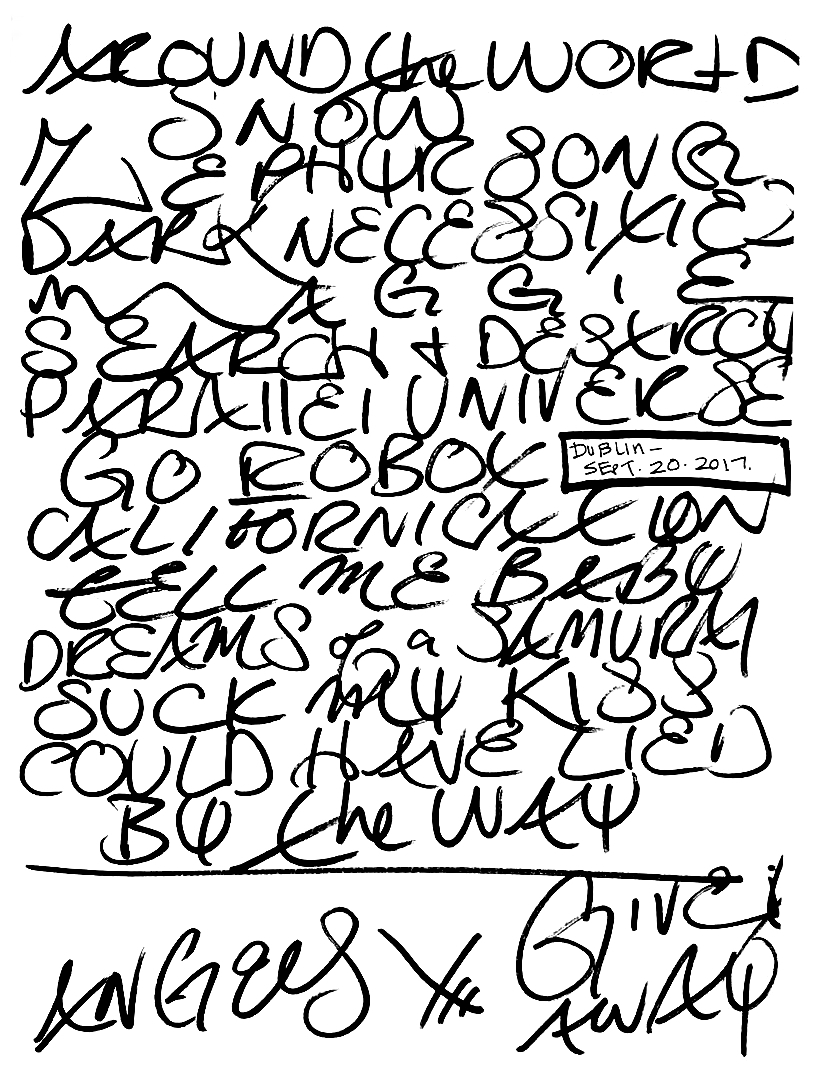 AROUND the WORLD
SNOW
ZEPHYR SONG
DARK NECESSITIES
MAGGIE
SEARCH + DESTROY
PARALLEL UNIVERSE
GO ROBOT
DUBLIN -
SEPT. 20. 2017.
CALIFORNICATION
TELL ME BABY
DREAMS of a SAMURAI
SUCK MY KISS
COULD HAVE LIED
BY the WAY
ANGELS
GIVE it
AWAY